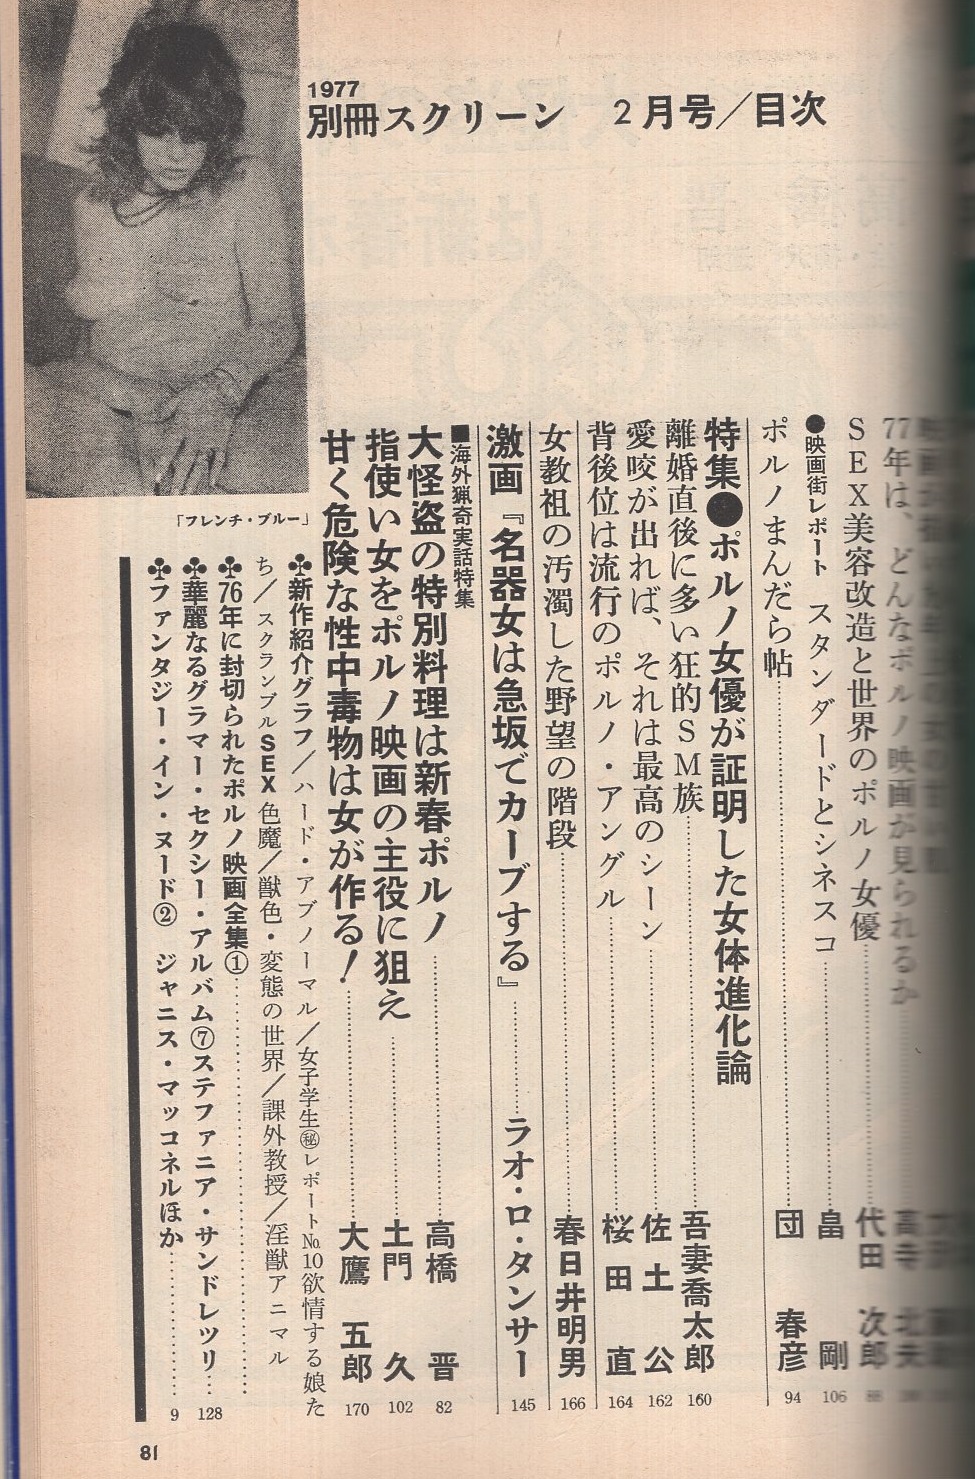 1977
別冊スクリーン　2月号／目次
77年は、どんなポルノ映画が見られるか
SEX美容改造と世界のポルノ女優……代田　次郎 88
●映画街レポート　スタンダードとシネスコ……畠　剛 106
ポルノまんだら帖……団　春彦 94
特集●ポルノ女優が証明した女体進化論
離婚直後に多い狂的SM族……吾妻喬太郎 160
愛咬が出れば、それは最高のシーン……佐土　公 162
背後位は流行のポルノ・アングル……桜田　直 164
女教祖の汚濁した野望の階段……春日井明男 166
激画『名器女は急坂でカーブする』……ラオ・ロ・タンサー 145
■海外猟奇実話特集
大怪盗の特別料理は新春ポルノ……高橋　晋 82
指使い女をポルノ映画の主役に狙え……土門　久 102
甘く危険な性中毒物は女が作る！……大鷹　五郎 170
「フレンチ・ブルー」
♣新作紹介グラフ／ハード・アブノーマル／女子学生㊙レポート№10欲情する娘た
ち／スクランブルSEX 色魔／獣色・変態の世界／課外教授／淫獣アニマル
♣76年に封切られたポルノ映画全集①……
♣華麗なるグラマー・セクシー・アルバム⑦ステファニア・サンドレツリ…128
♣ファンタジー・イン・ヌード②　ジャニス・マッコネルほか……9
81